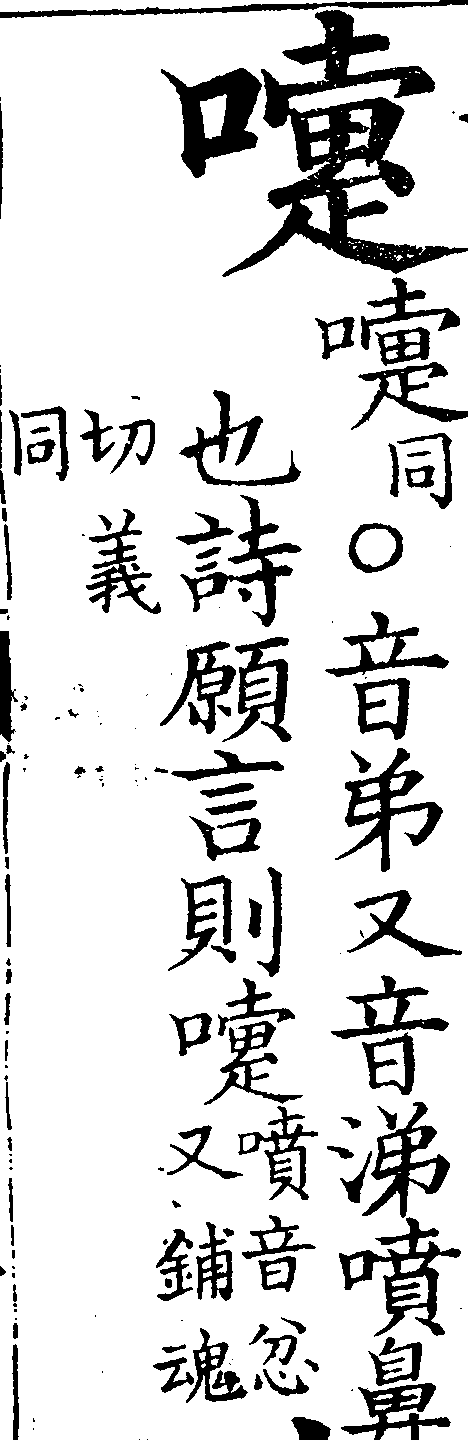 嚏
嚏同
○音弟又音涕噴鼻
也詩願言則嚏
噴音忿
又鋪魂
切義
同